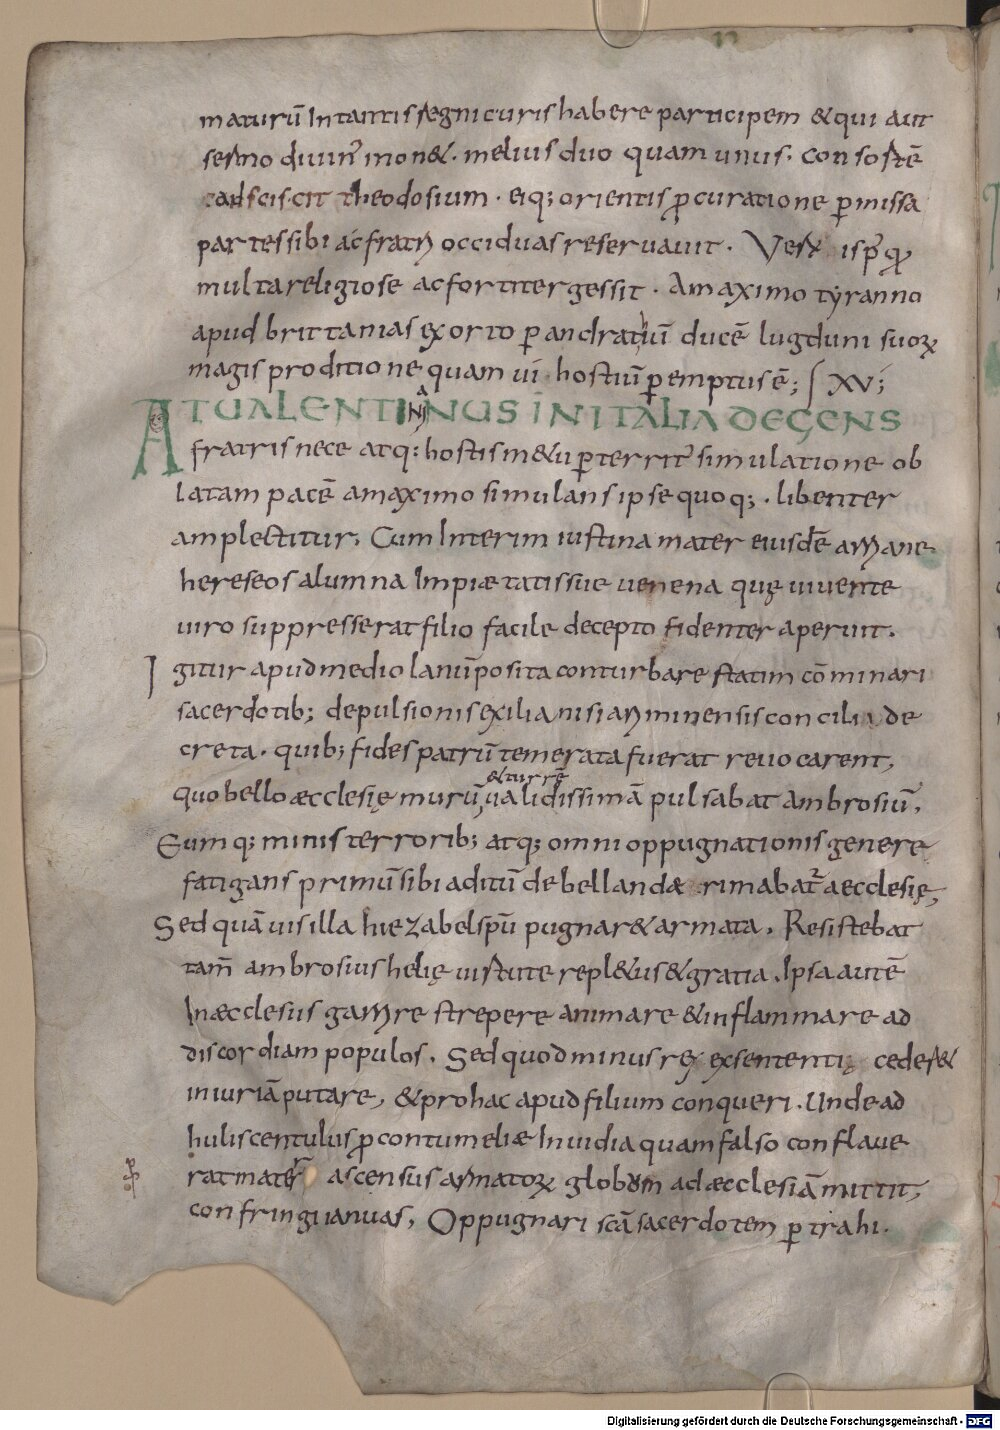 maturū Intantis segni curis habere participem &qui aut
sermo diuin' mon&. melius duo quam unus. consortē
adsciscit theodosium. eiq; orientis pcuratione pmissa
partes sibi ac fratri occiduas reseruauit.
multa religiose ac fortiter gessit. Amaximo tyranno
apud brittanias exorto p andratiū ducē lugduni suoꝝ
magis proditione quam ui hostiū pemptus ē; XV;
ATUALENTINIANUS INITALIA DEGENS
fratris nece atq: hostis m&u pterrit' simulatione ob
latam pacē amaximo simulans ipse quoq;. libenter
amplectitur. Cum Interim iustina mater eiusdē arriane
hereseos alumna Impiætatis suę uenena quę uiuente
uiro suppresserat filio facile decepto fidenter aperuit.
Igitur apud mediolanū posita conturbare statim cōminari
sacerdotib; depulsionis exilia nisi ariminensis concilia de
creta. quib; fides patrū temerata fuerat reuocarent,
&turrē
quo bello æcclesię murū, ualidissimā pulsabat ambrosiū.
Eumq; minis terrorib; atq; omni oppugnationis genere
fatigans primū sibi aditū debellandæ rimabat' aecclesię,
Sed quāuis illa hiezabel spū pugnar& armata. Resistebat
tam̄ ambrosius helię uirtute repl&us & gratia. Ipsa autē
Inæcclesiis garrire strepere animare & inflammare ad
discordiam populos. Sed quod minus rex exsententię cedes&
iniuriā putare, & pro hac apud filium conqueri. Unde ad
huliscentulus p contumeliæ Inuidia quam falso conflaue
rat mater ascensus armatoꝝ globum ad æcclesiā mittit,
confringi ianuas, Oppugnari scā sacerdotem ptrahi.
Digitalisierung gefördert durch die Deutsche Forschungsgemeinschaft - DFG